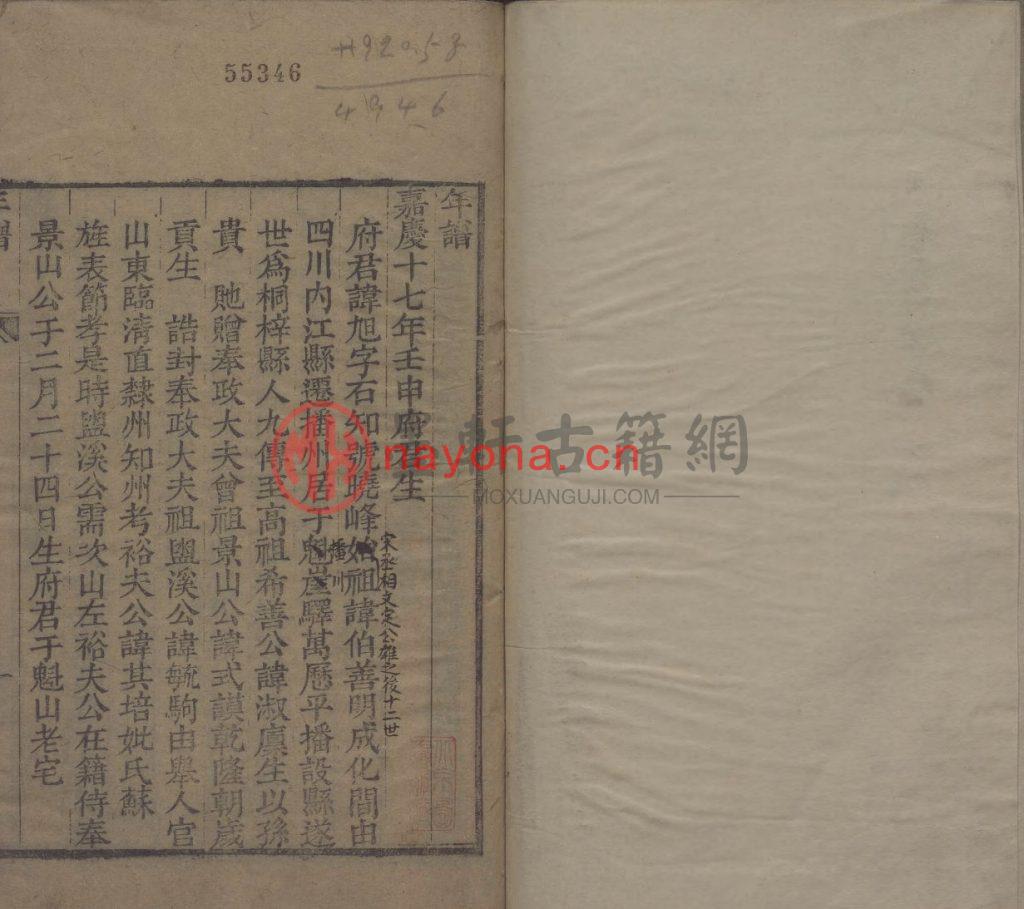 55346
H920.58
4946
年譜
嘉慶十七年壬申府君生
府君諱旭字石知號曉峰始祖諱伯善明成化間由
宋丞相文定公雄之後十二世
四川內江縣遷播州居于魁崖驛萬歷平播設縣遂
播川
世爲桐梓縣人九傳至高祖希善公諱淑廩生以孫
貴 貤贈奉政大夫曾祖景山公諱式謨乾隆朝歲
貢生 誥封奉政大夫祖鹽溪公諱毓駒由舉人官
山東臨清直隸州知州考裕夫公諱其培妣氏蘇
旌表節孝是時鹽溪公需次山左裕夫公在籍侍奉
景山公于二月二十四日生府君于魁山老宅
年譜
一
軒古籍網
MOXUANGUJI.COM
nayona.cn